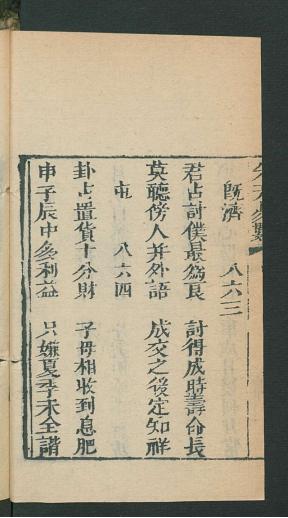 既濟 八六三
君占討僕最為良 討得成時壽命長
莫聽傍人并外語 成交之後定知祥
屯 八六四
卦占置貨十分財 子母相收到息肥
申子辰中多利益 只嫌夏季未全諧